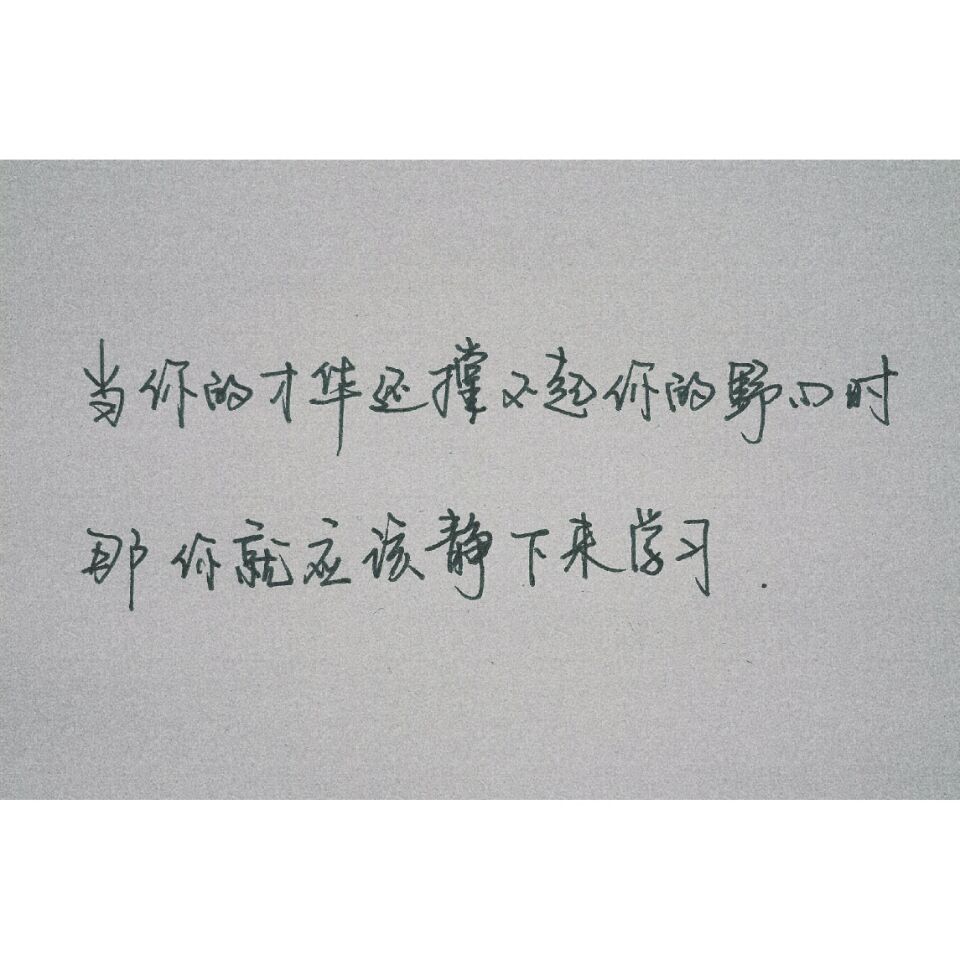 当你的才华还撑不起你的野心时
那你就应该静下来学习.